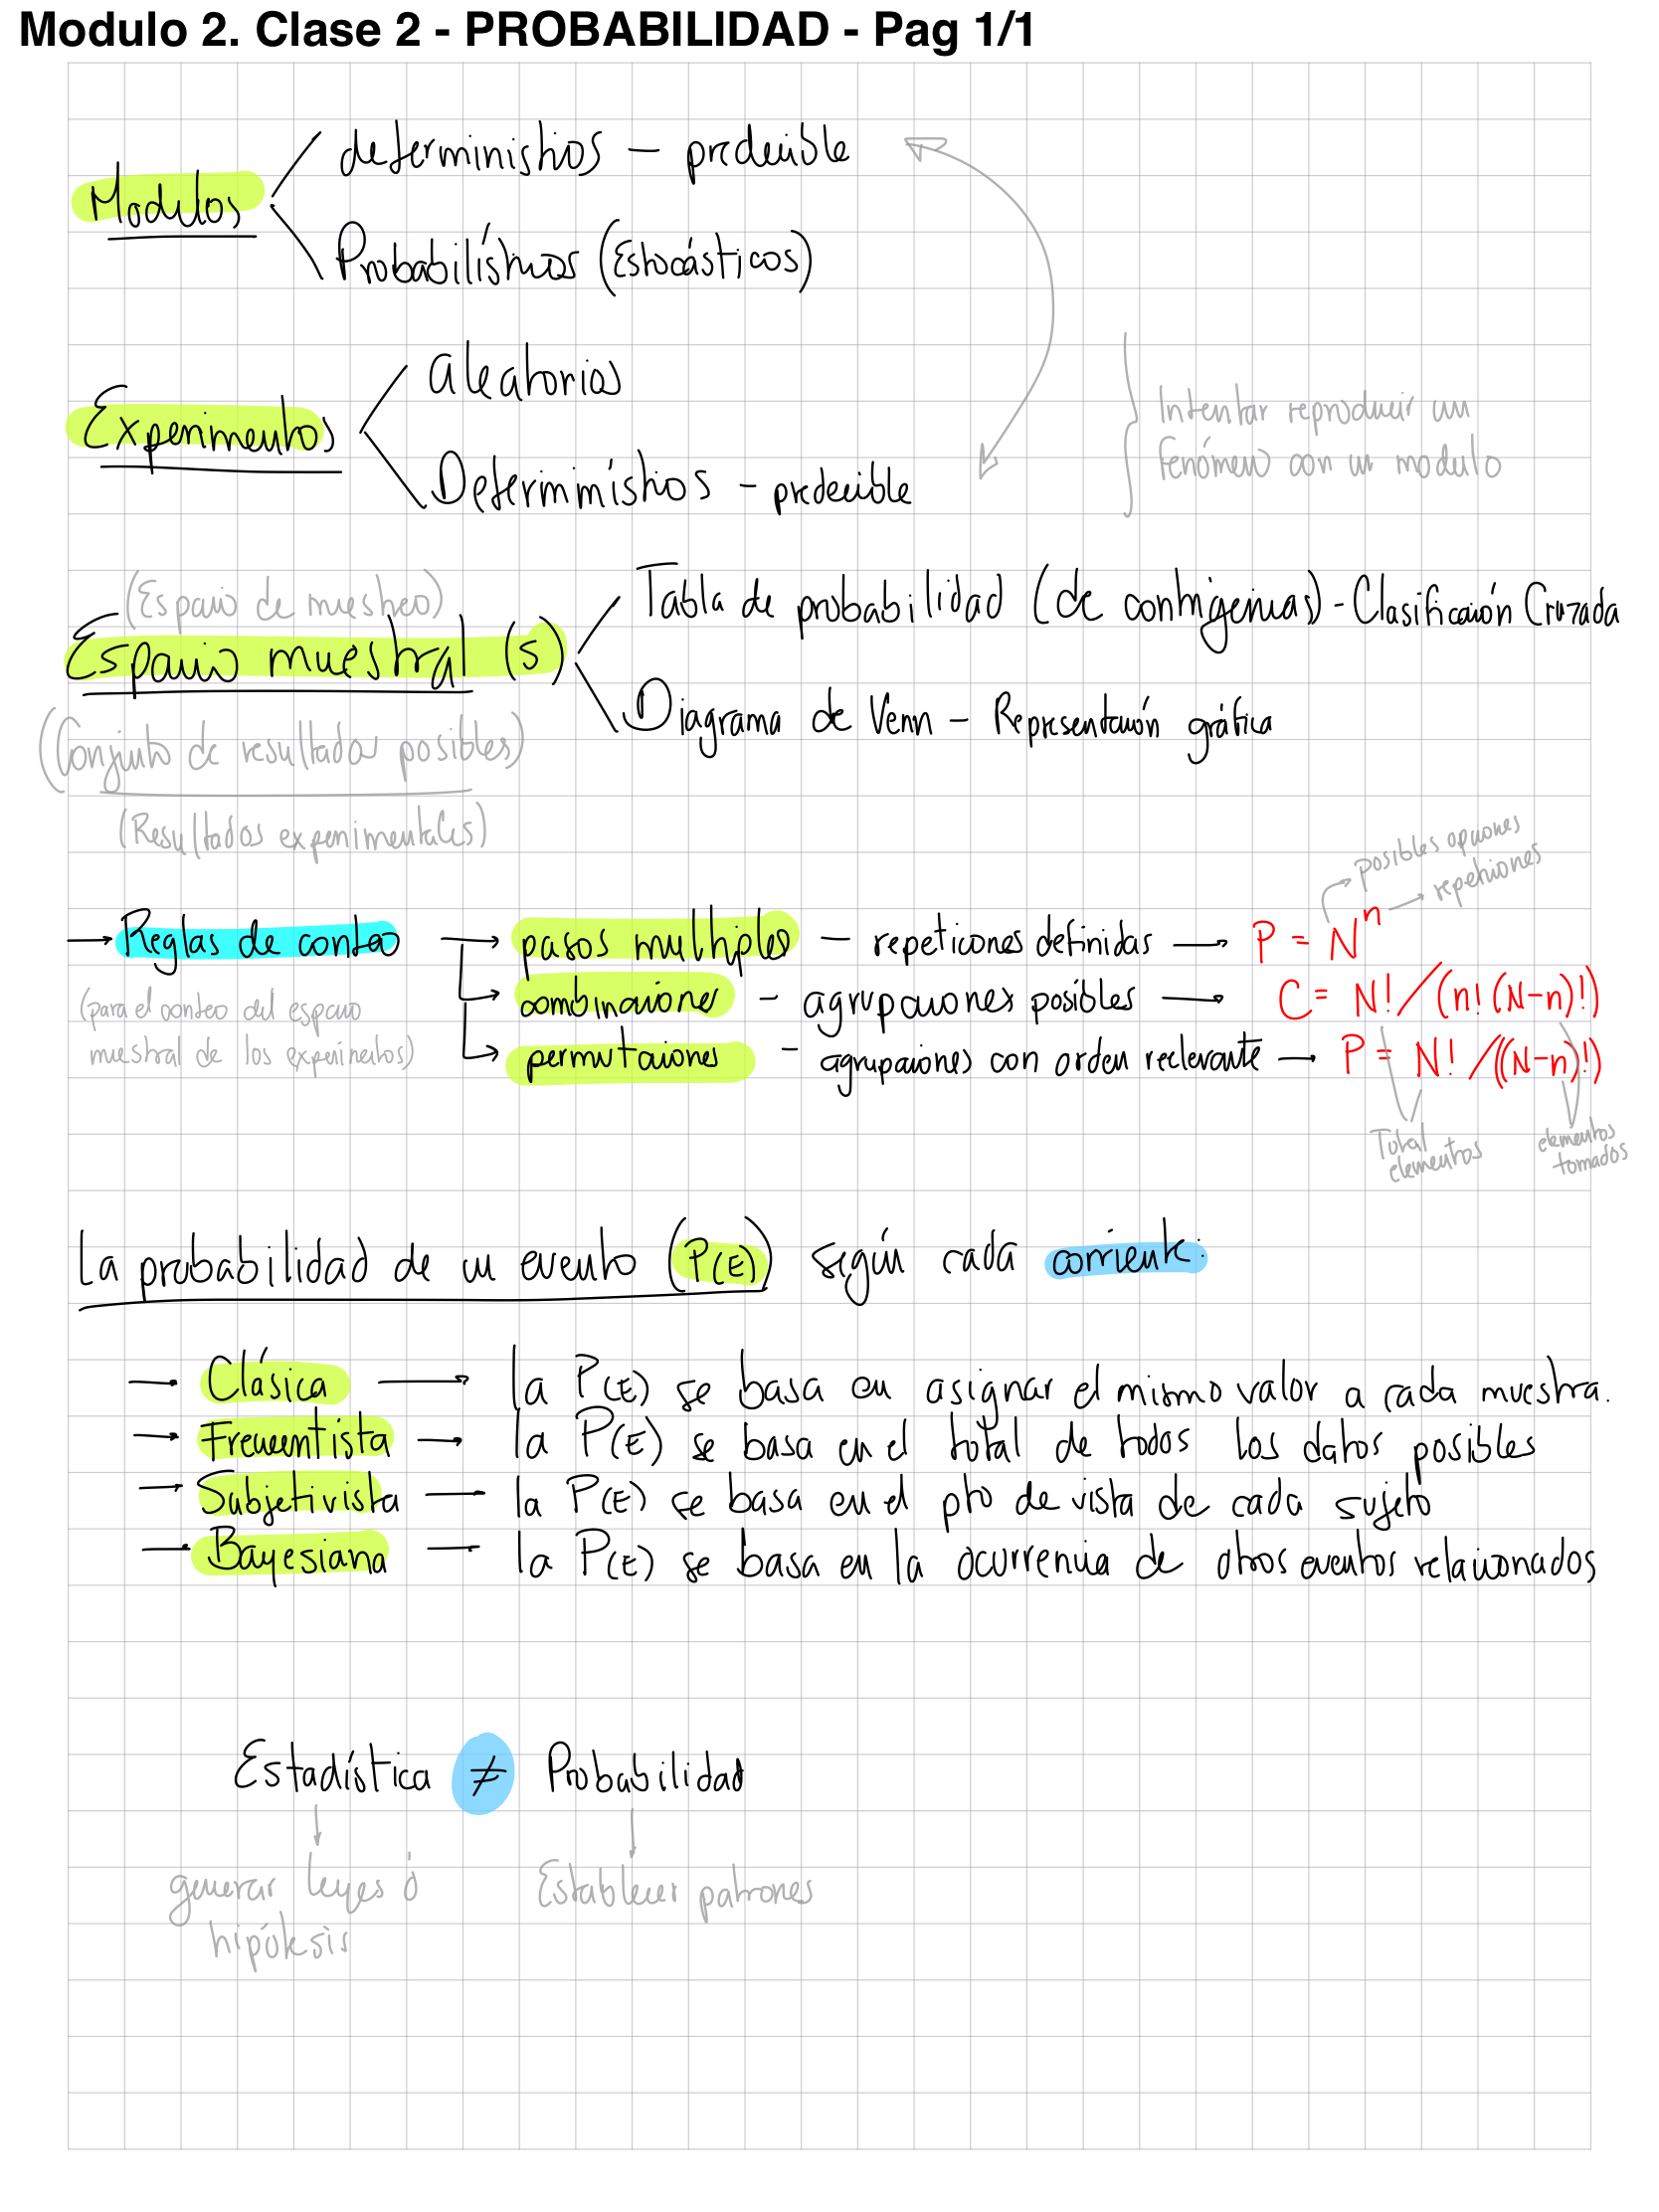 Modulo 2. Clase 2 - PROBABILIDAD - Pag 1/1
Modelos
determinístios – predecible
Probabilísticos (Estocásticos)
Experimentos
aleatorios
Determinístios – predecible
Intentar reproducir un
fenómeno con un modulo
(Espacio de muestreo)
Espacio muestral (s)
(Conjunto de resultados posibles)
(Resultados experimentales)
Tabla de probabilidad (de contingencias) - Clasificación Cruzada
Diagrama de Venn – Representación gráfica
→ Reglas de conteo
(para el conteo del espacio
muestral de los experimentos)
→ pasos multiples – repeticones definidas → P = N^n
posibles opciones
→ repeticiones
→ combinaciones – agrupaciones posibles → C = N! / (n! (N-n)!)
→ permutaciones – agrupaciones con orden reclevante → P = N! / ((N-n)!)
Total elementos
elementos tomados
La probabilidad de un evento (P(E)) según cada corriente:
→ Clásica → la P(E) se basa en asignar el mismo valor a cada muestra.
→ Frecuentista → la P(E) se basa en el total de todos los datos posibles
→ Subjetivista — la P(E) se basa en el pto de vista de cada sujeto
→ Bayesiana — la P(E) se basa en la ocurrencia de otros eventos relacionados
Estadística ≠ Probabilidad
generar leyes ó
hipótesis
Establecer patrones